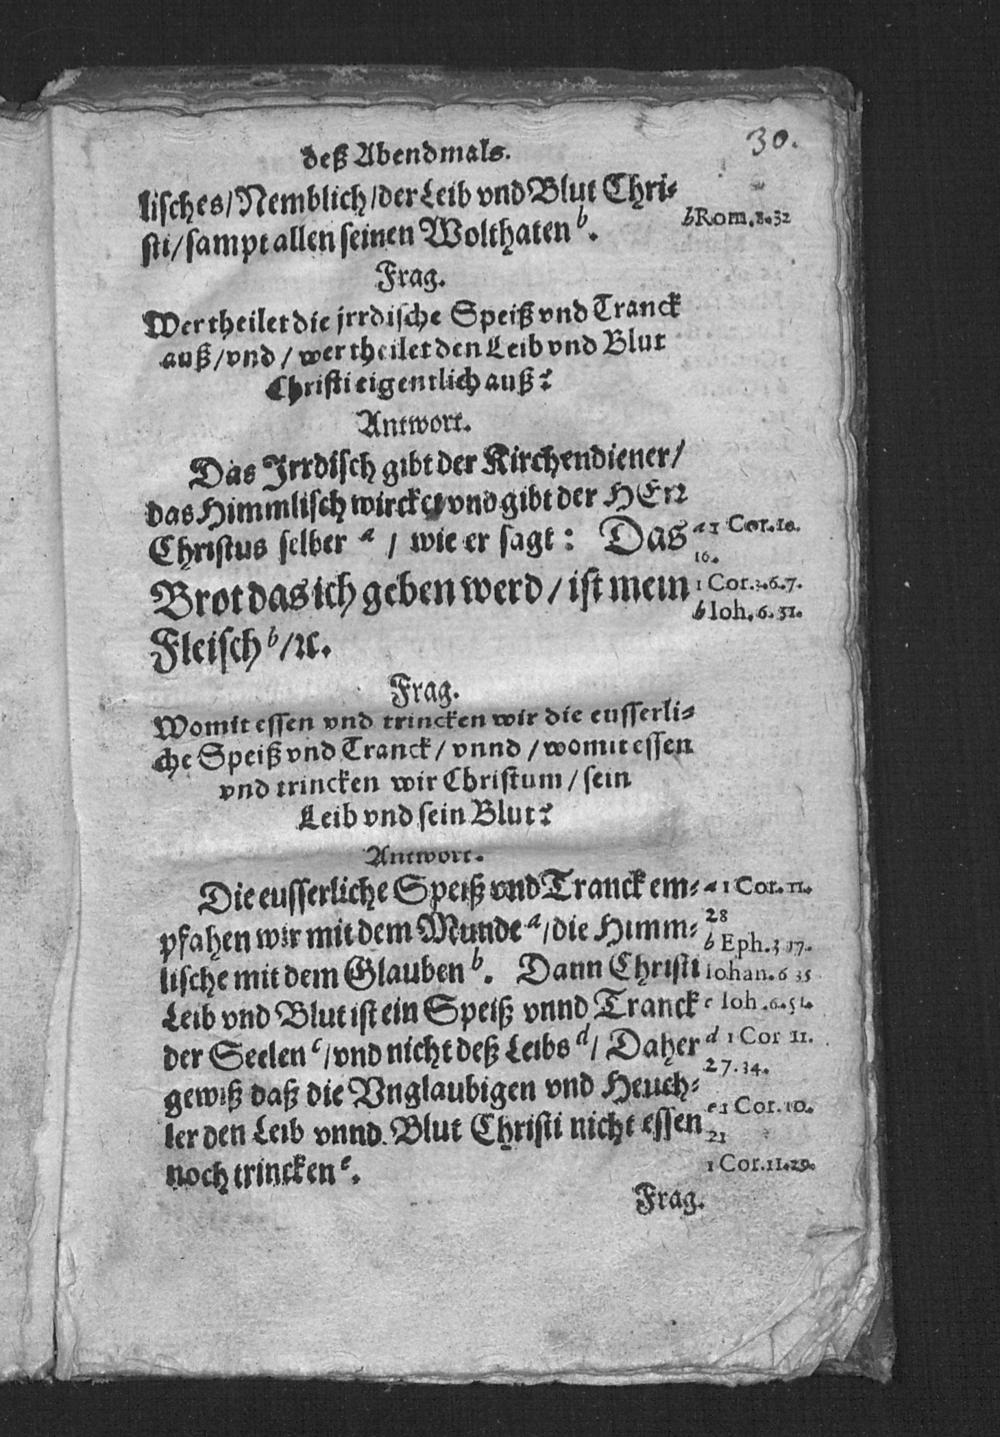 deß Abendmals.
30.
lisches/Nemblich/der Leib vnd Blut Chri-
sti/sampt allen seinen Wolthaten b.
b Rom. 8. 32
Frag.
Wer theilet die jrrdische Speiß vnd Tranck
auß/vnd/wer theilet den Leib vnd Blut
Christi eigentlich auß?
Antwort.
Das Jrrdisch gibt der Kirchendiener/
das Himmlisch wircket vnd gibt der HErr
Christus selber a / wie er sagt: Das
a 1 Cor. 10.
16.
Brot das ich geben werd/ist mein
1 Cor. 3. 6. 7.
b Ioh. 6. 51.
Fleisch b/ꝛc.
Frag.
Womit essen vnd trincken wir die eusserli-
che Speiß vnd Tranck/vnnd/womit essen
vnd trincken wir Christum/sein
Leib vnd sein Blut?
Antwort.
Die eusserliche Speiß vnd Tranck em-
pfahen wir mit dem Munde a/die Himm-
lische mit dem Glauben b. Dann Christi
Leib vnd Blut ist ein Speiß vnnd Tranck
der Seelen c/vnd nicht deß Leibs d/ Daher
gewiß daß die Vnglaubigen vnd Heuch-
ler den Leib vnnd Blut Christi nicht essen
noch trincken e.
a 1 Cor. 11.
28
b Eph. 3 17.
Iohan. 6 35
c Ioh. 6. 51.
d 1 Cor 11.
27. 34.
e 1 Cor. 10.
21
1 Cor. 11. 29.
Frag.